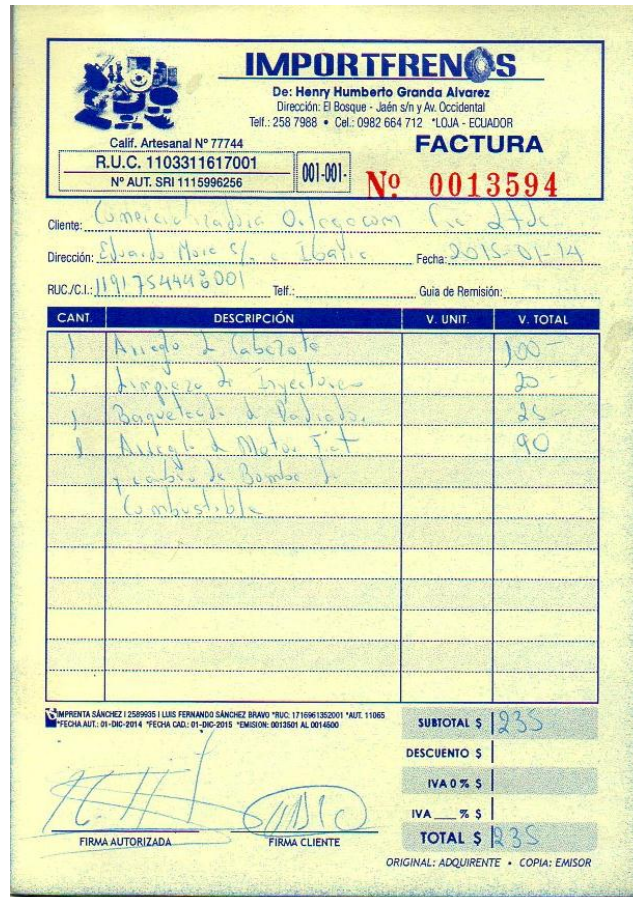 IMPORTFRENOS
De: Henry Humberto Granda Alvarez
Dirección: El Bosque - Jaén s/n y Av. Occidental
Telf.: 258 7988 • Cel.: 0982 664 712 *LOJA - ECUADOR
Calif. Artesanal Nº 77744
FACTURA
R.U.C. 1103311617001
001-001-
Nº 0013594
Nº AUT. SRI 1115996256
Cliente: Comercializadora Ortegacom Cia Ltda
Dirección: Eduardo Mora s/n e Ibarra Fecha: 2015-01-14
RUC./C.I.: Telf.: Guia de Remisión:
CANT. DESCRIPCIÓN V. UNIT. V. TOTAL
1 Arreglo d Cabezote 100-
1 Limpieza de Inyectores 20-
1 Baqueteada d Radiador 25-
1 Arreglo d Motor 90
y cambio de Bomba de
Combustible
IMPRENTA SÁNCHEZ I 2589935 I LUIS FERNANDO SÁNCHEZ BRAVO *RUC: 1716961352001 *AUT. 11065
*FECHA AUT.: 01-DIC-2014 *FECHA CAD.: 01-DIC-2015 *EMISION: 0013501 AL 0014500
SUBTOTAL $ 235
DESCUENTO $
IVA 0 % $
IVA ___ % $
TOTAL $ 235
FIRMA AUTORIZADA FIRMA CLIENTE
ORIGINAL: ADQUIRENTE • COPIA: EMISOR